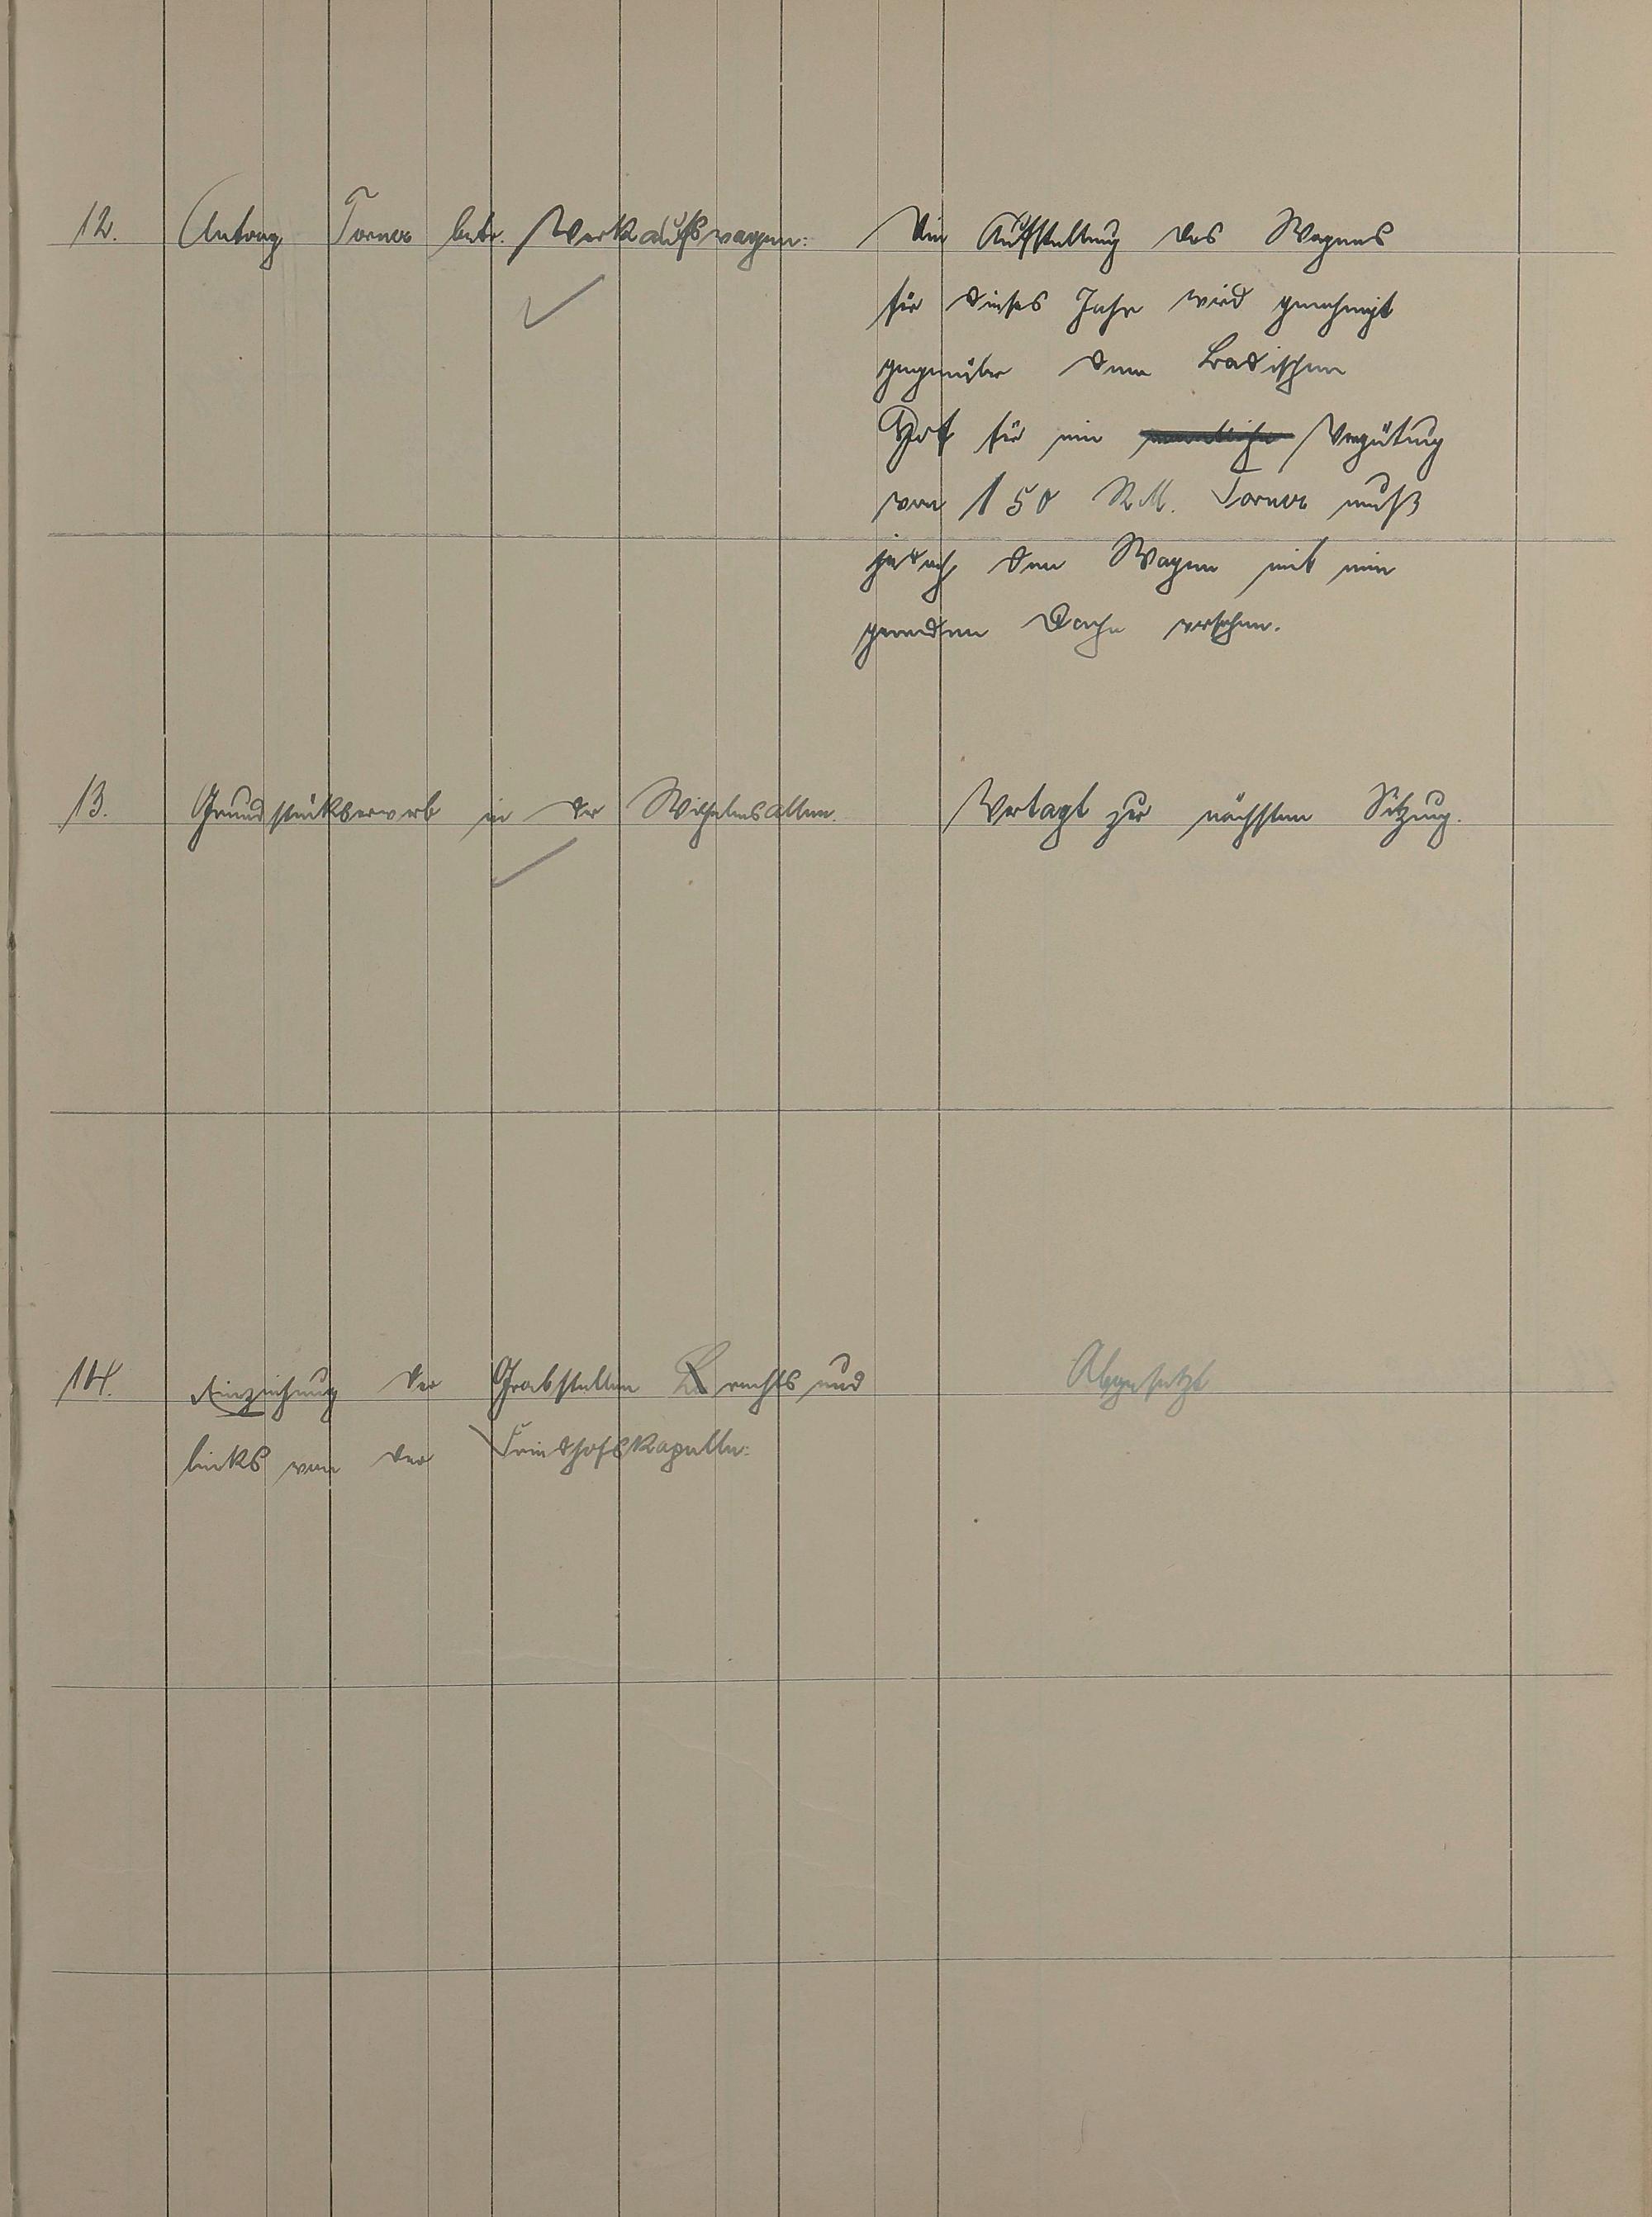 12. Antrag Torner betr. Verkaufswagen: Die Aufstellung des Wagens
für dieses Jahr wird genehmigt
gegenüber dem Badischen
Hof für ein Vergütung
von 150 RM. Torner muß
jedoch den Wagen mit ein
geraden Dache versehen.
13. Grundstückserwerb in der Wilhelmsallee. Vertagt zur nächsten Sitzung.
14. Einziehung der Grabstellen rechts und Abgesetzt
links von der Friedhofskapelle: